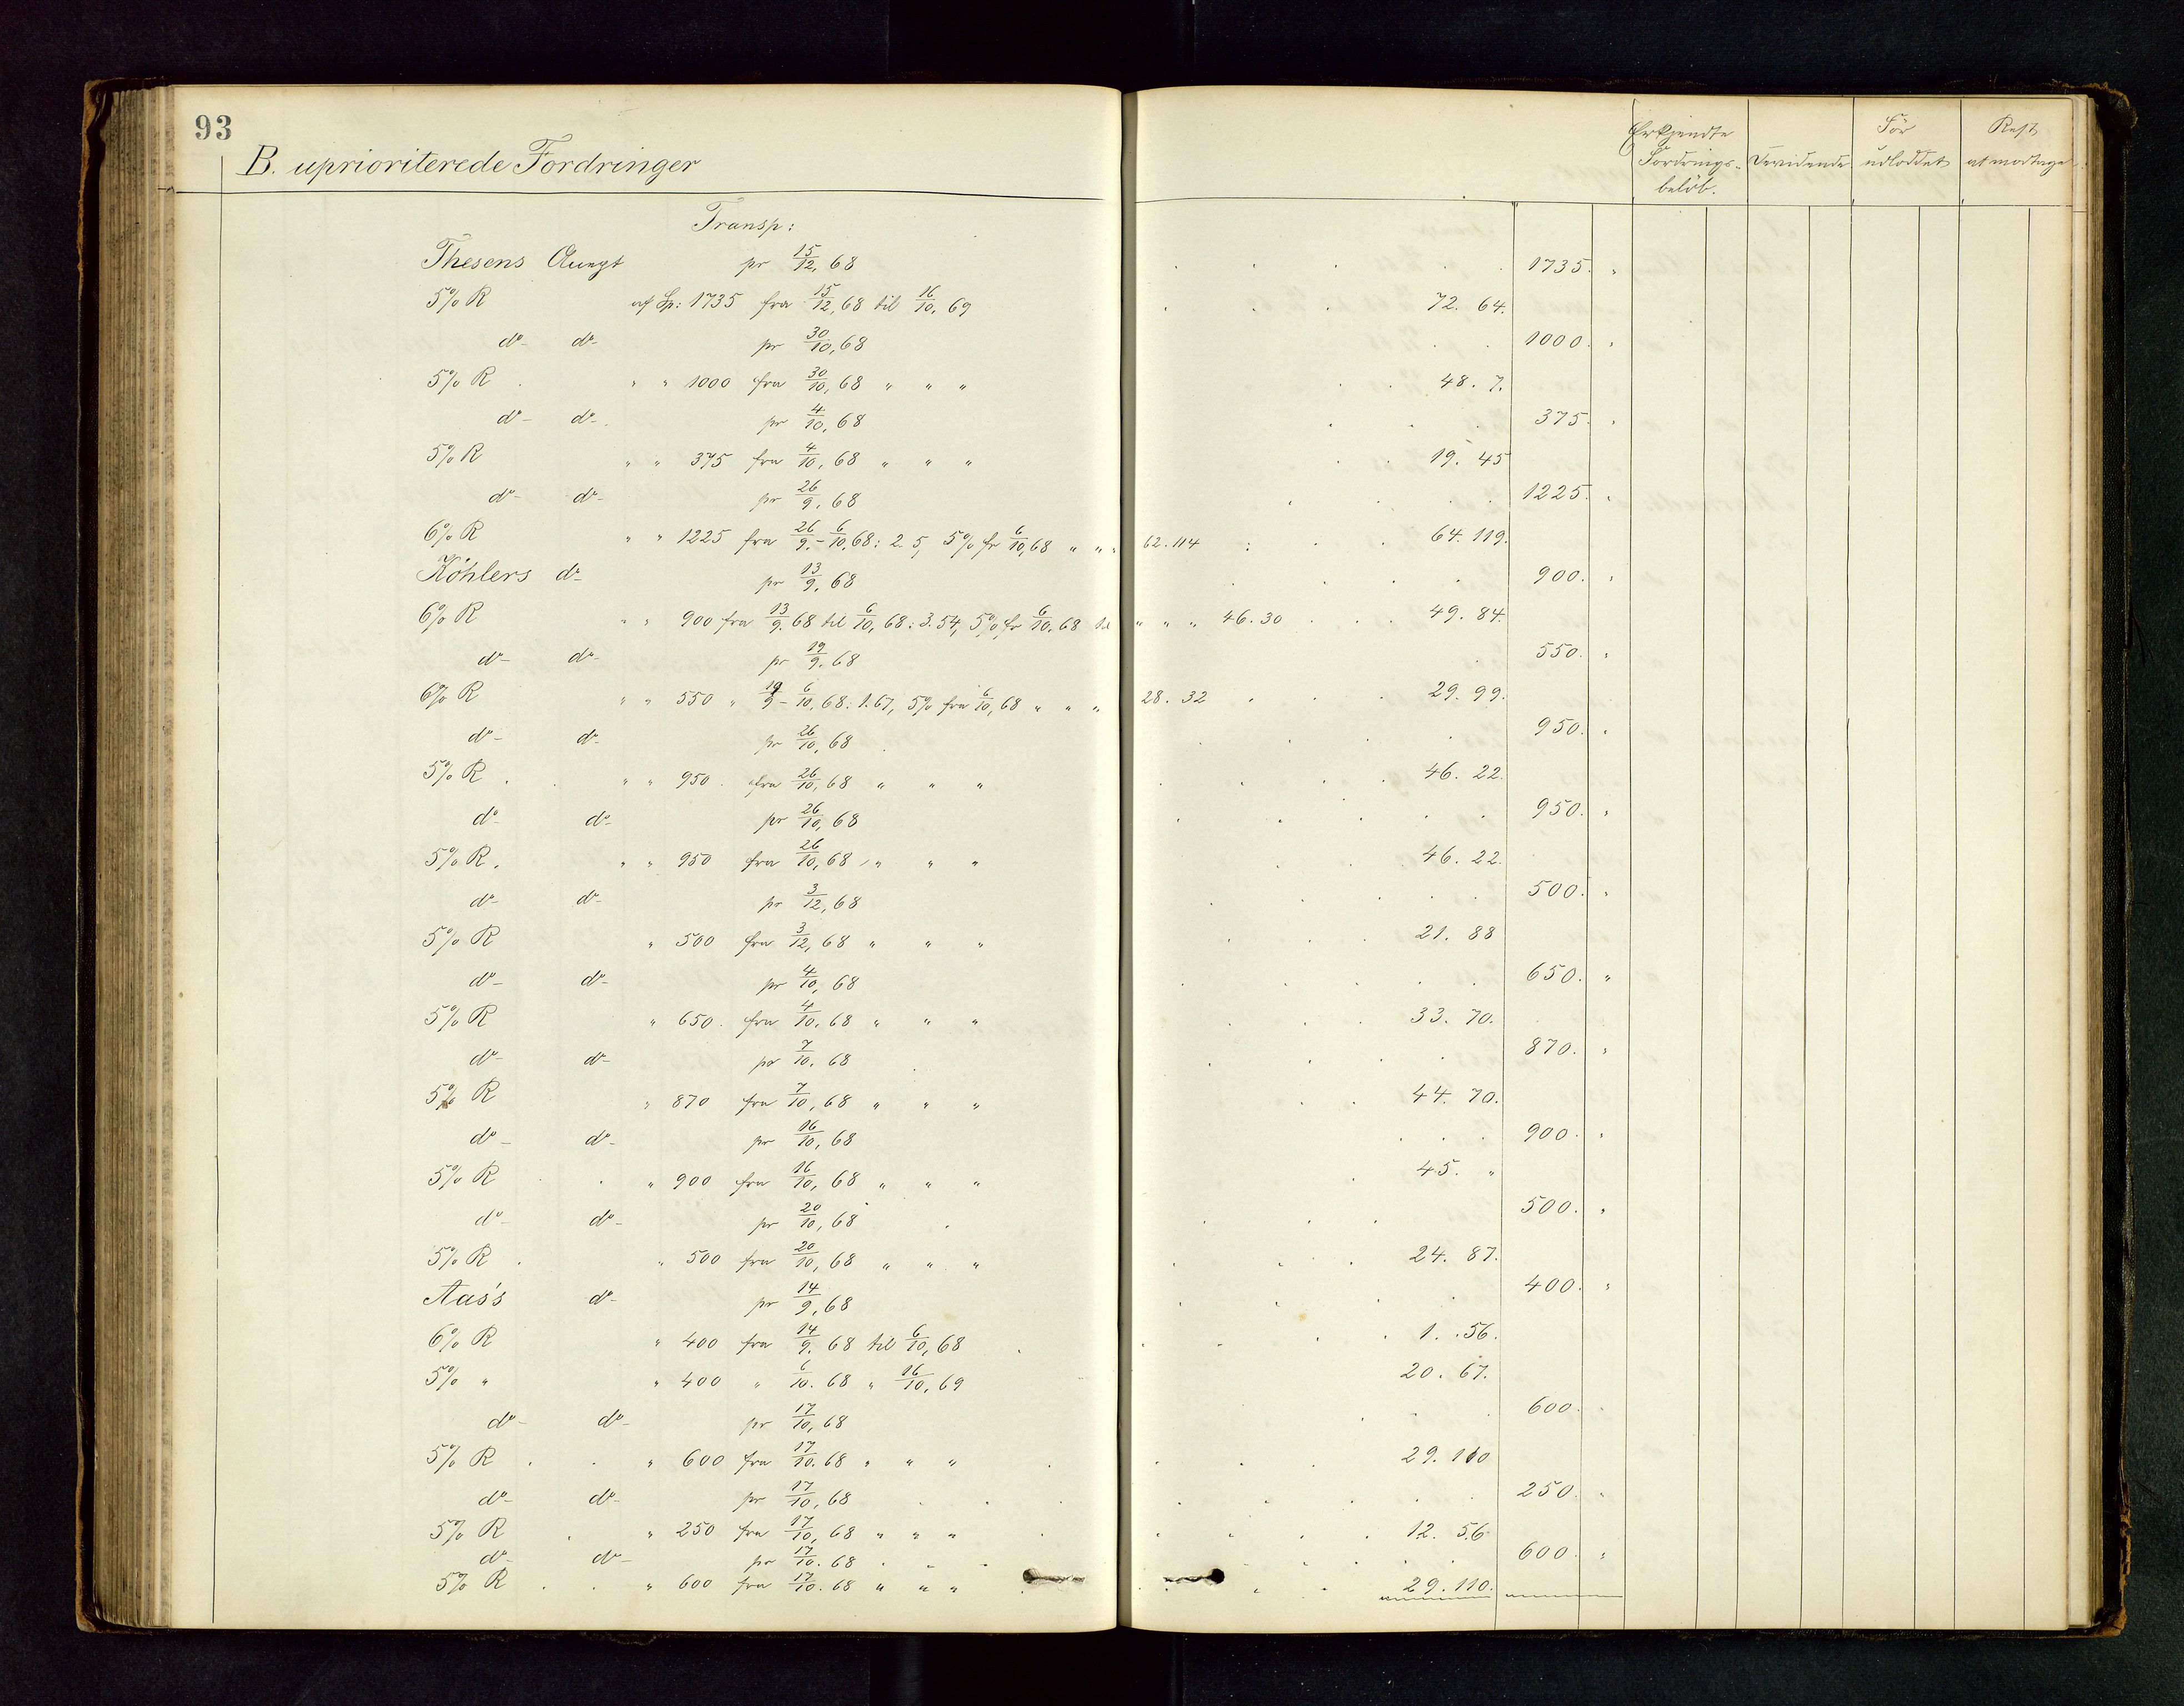 93
B. uprioriterede Fordringer
Erkjendte Fordrings- beløb.
Devidende
Før udloddet
Rest at modtage
Transp:
Thesens pr 15/12, 68 1735. "
5% R af Sp: 1735 fra 15/12, 68 til 16/10, 69 72. 64.
do- do- pr 30/10, 68 1000. "
5% R " " 1000 fra 30/10, 68 " " " 48. 7.
do- do- pr 4/10, 68 375. "
5% R " " 375 fra 4/10, 68 " " " 19. 45
do- do- pr 26/9, 68 1225. "
6% R " " 1225 fra 26/9 - 6/10, 68: 2. 5, 5% fr 6/10, 68 " " " 62. 114 64. 119.
Köhlers do- pr 13/9, 68 900. "
6% R " " 900 fra 13/9. 68 til 6/10, 68: 3. 54, 5% fr 6/10, 68 til " " " 46. 30 49. 84.
do- do- pr 19/9. 68 550. "
6% R " " 550 " 19/9 - 6/10, 68: 1. 67, 5% fra 6/10, 68 " " " 28. 32 29. 99.
do- do- pr 26/10, 68 950. "
5% R " " 950. fra 26/10, 68 " " " 46. 22.
do- do- pr 26/10, 68 950. "
5% R. " " 950 fra 26/10, 68 " " " 46. 22.
do- do- pr 3/12, 68 500. "
5% R " 500 fra 3/12, 68 " " " 21. 88
do- do- pr 4/10, 68 650. "
5% R " 650. fra 4/10, 68 " " " 33. 70.
do- do- pr 7/10, 68 870. "
5% R " 870 fra 7/10, 68 " " " 44. 70.
do- do- pr 16/10, 68 900. "
5% R " 900 fra 16/10, 68 " " " 45. "
do- do- pr 20/10, 68 500. "
5% R " 500 fra 20/10, 68 " " " 24. 87.
Aas's do- pr 14/9, 68 400. "
6% R " 400 fra 14/9. 68 til 6/10, 68 1. 56.
5% " " 400 " 6/10. 68 " 16/10, 69 20. 67.
do- do- pr 17/10, 68 600. "
5% R " 600 fra 17/10. 68 " " " 29. 110
do- do- pr 17/10, 68 250. "
5% R " 250 fra 17/10, 68 " " " 12. 56.
do- do- pr 17/10. 68 600. "
5% R " 600 fra 17/10. 68 " " " 29. 110.